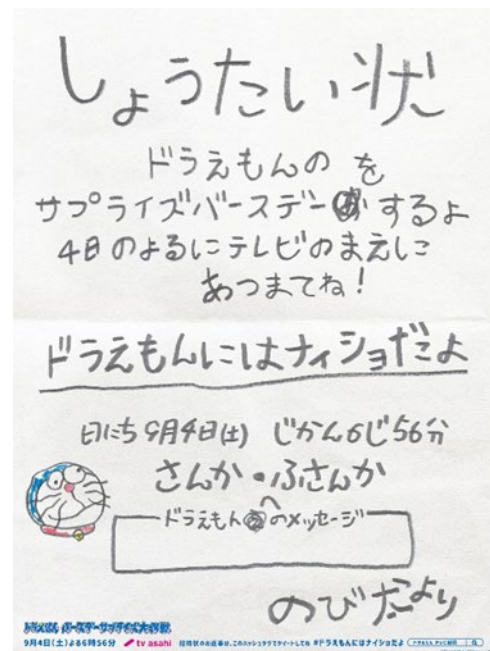 しょうたい状
ドラえもんの を
サプライズバースデーするよ
4日のよるにテレビのまえに
あつまてね!
ドラえもんにはナイショだよ
日にち 9月4日(土) じかん6じ56分
さんか・ふさんか
ドラえもんへのメッセージ
のびたより
ドラえもん バースデーサプライズ大作戦
9月4日(土)よる6時56分 tv asahi 招待状のお返事は、このハッシュタグでツイートしてね #ドラえもんにはナイショだよ